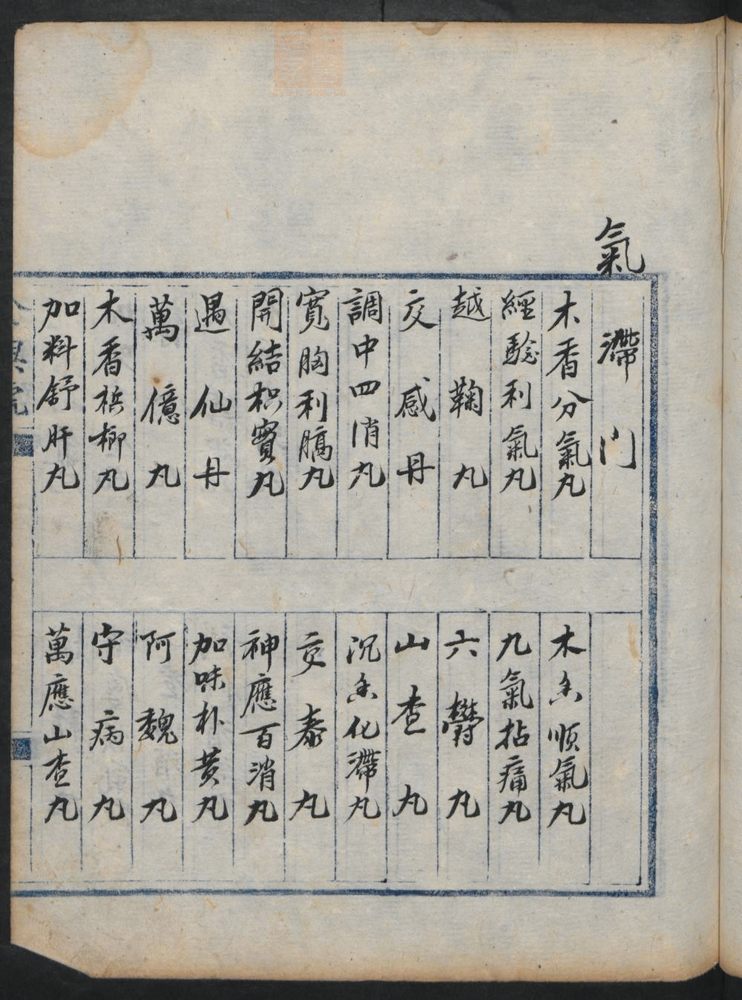 氣
滯門
木香分氣丸
經驗利氣丸
越鞠丸
交感丹
調中四消丸
寬胸利膈丸
開結枳實丸
遇仙丹
萬億丸
木香梹柳丸
加料舒肝丸
木香順氣丸
九氣拈痛丸
六欝丸
山查丸
沉香化滯丸
交泰丸
神應百消丸
加味朴黄丸
阿魏丸
守病丸
萬應山查丸